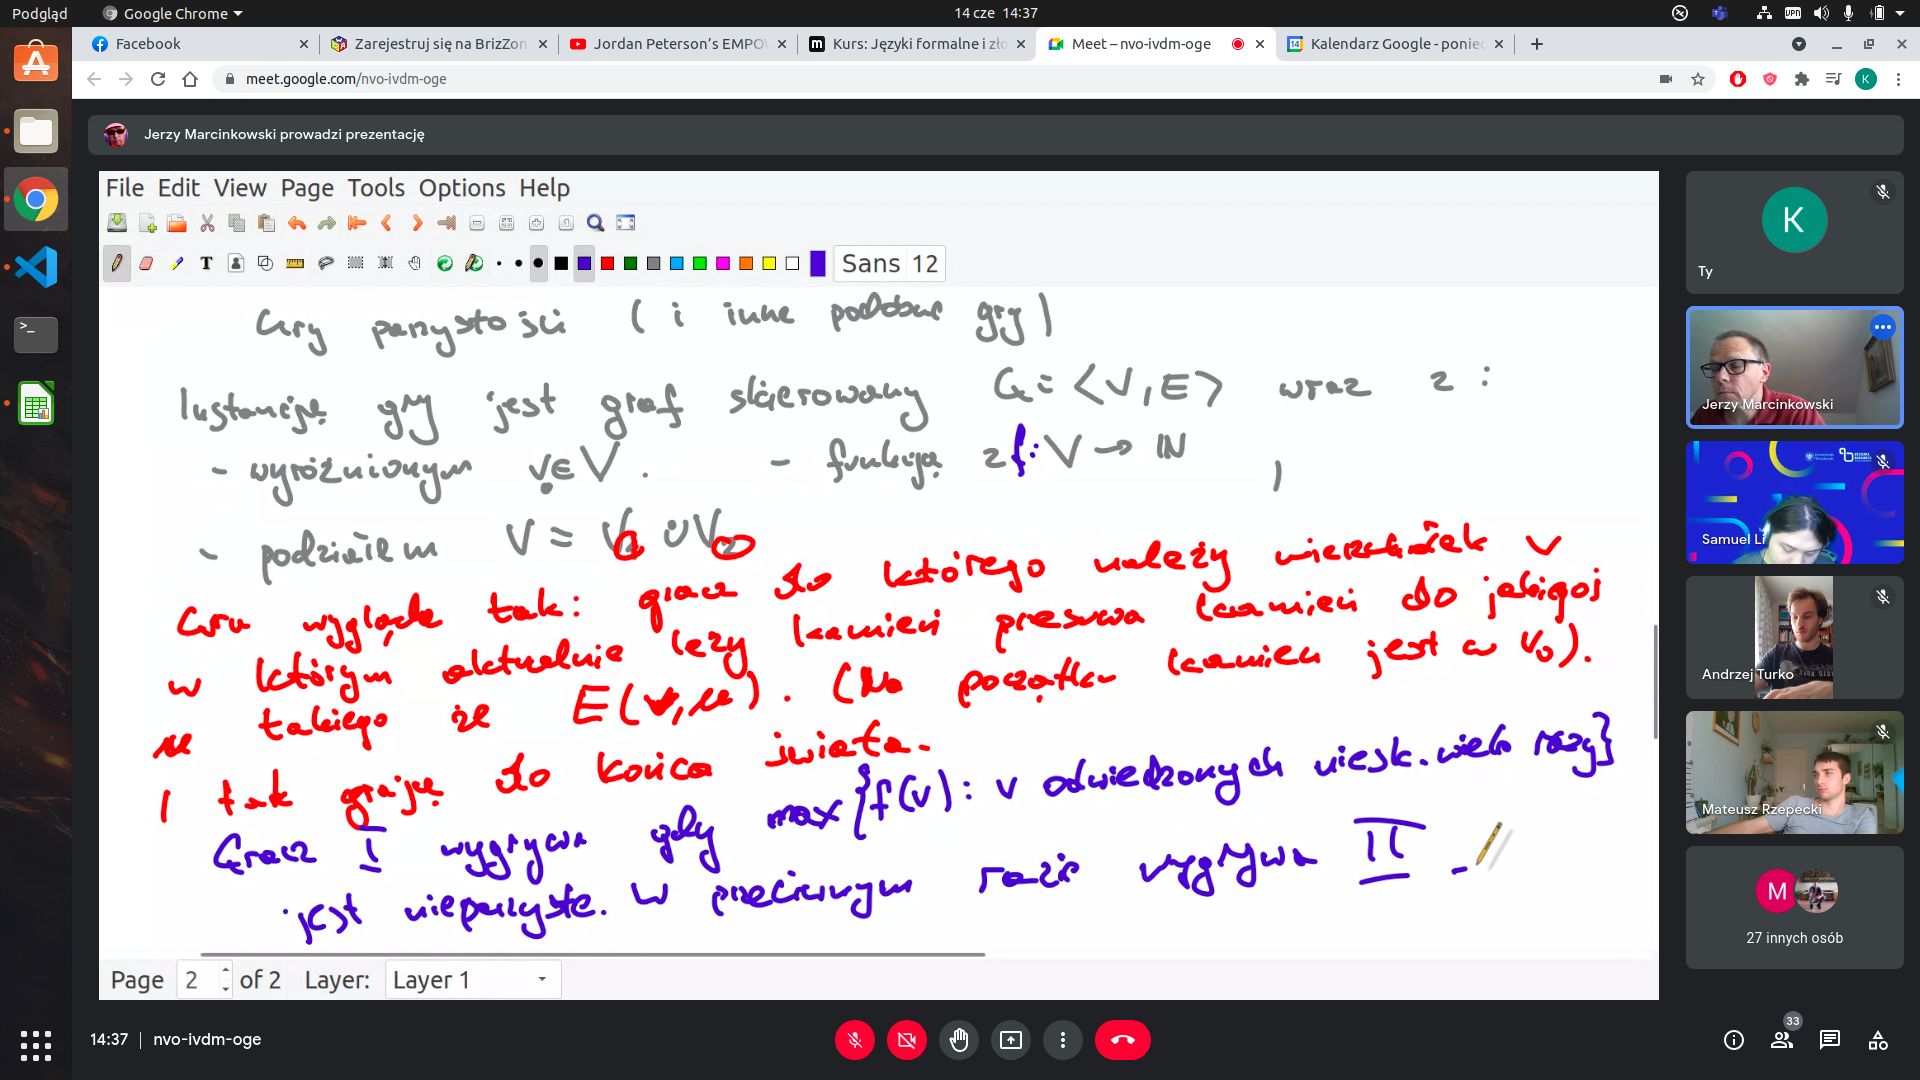 Podgląd
Google Chrome
14 cze 14:37
VPN
Facebook
Zarejestruj się na BrizZon
Jordan Peterson's EMPO
Kurs: Języki formalne i zło
Meet – nvo-ivdm-oge
Kalendarz Google - ponie
meet.google.com/nvo-ivdm-oge
K
Jerzy Marcinkowski prowadzi prezentację
File Edit View Page Tools Options Help
Sans 12
Gry parzystości ( i inne podobne gry )
Instancją gry jest graf skierowany G = <V, E> wraz z :
- wyróżnionym v₀∈V. - funkcją z f: V → ℕ ,
- podziałem V = V ∪ V
Gra wygląda tak: gracz do którego należy wierzchołek v
w którym aktualnie leży kamień przesuwa kamień do jakiegoś
u takiego że E(v,u). (Na początku kamień jest w v₀).
I tak grają do końca świata.
Gracz I wygrywa gdy max{f(v): v odwiedzonych niesk. wiele razy}
jest nieparzyste. W przeciwnym razie wygrywa II -
Page 2 of 2 Layer: Layer 1
K
Ty
Jerzy Marcinkowski
Samuel Li
Andrzej Turko
Mateusz Rzepecki
M
27 innych osób
14:37 | nvo-ivdm-oge
33